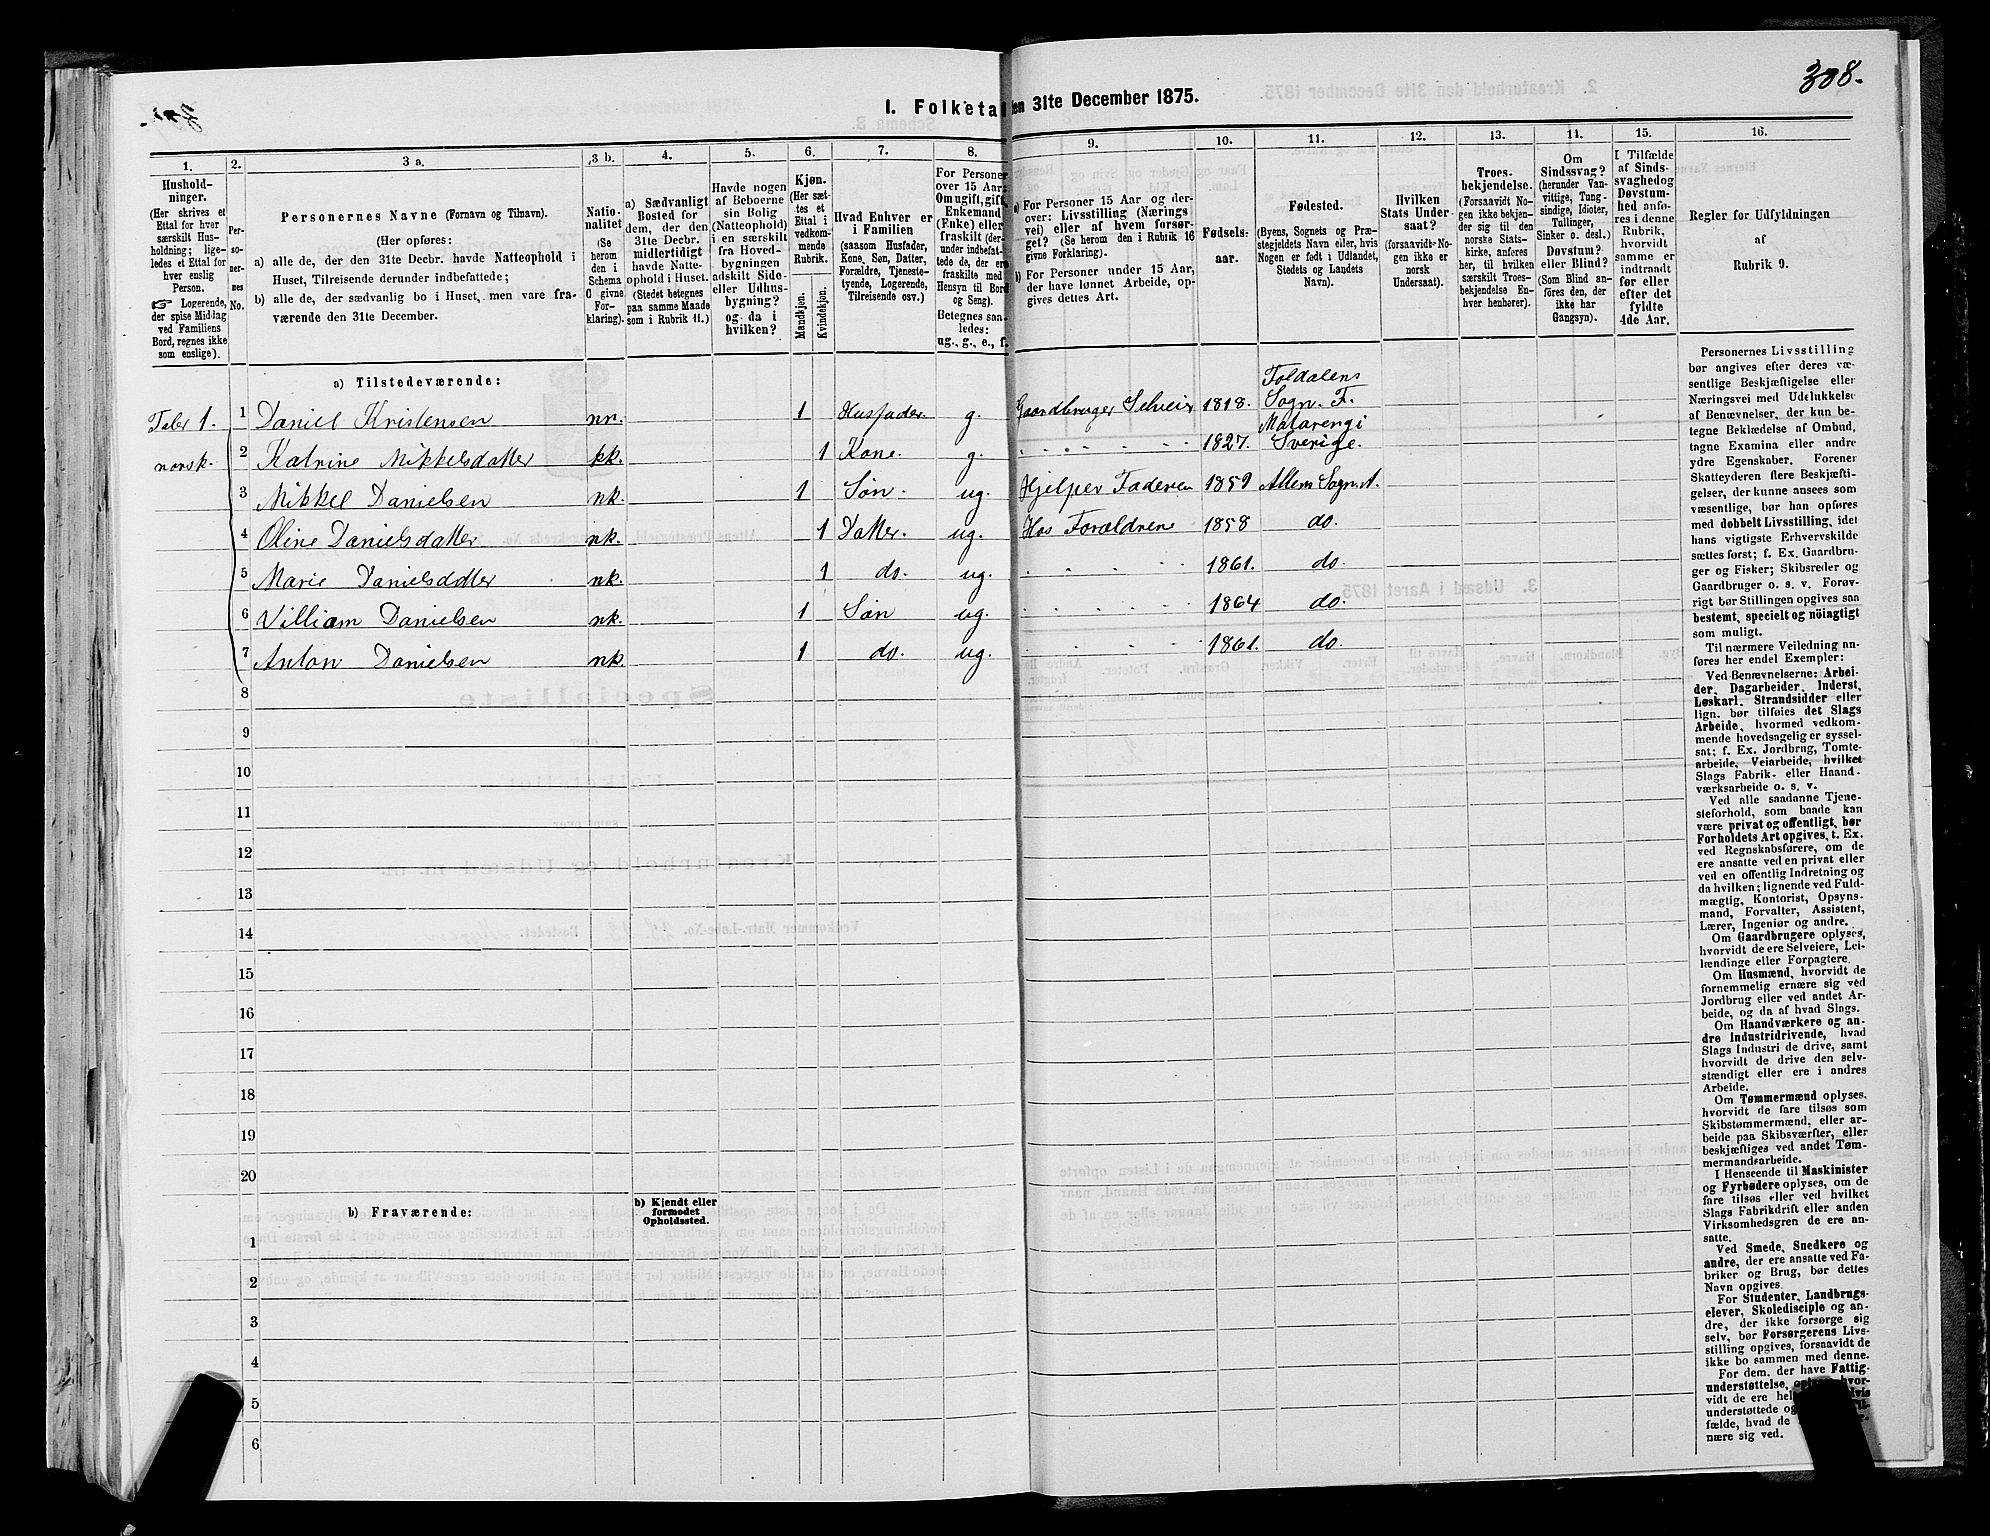 308.
I. Folketal den 31te December 1875.
1.
2.
3 a.
3 b.
4.
5.
6.
7.
8.
9.
10.
11.
12.
13.
14.
15.
16.
Hushold-
ninger.
(Her skrives et
Ettal for hver
særskilt Hus-
holdning; lige-
ledes et Ettal for
hver enslig
Person.
☞ Logerende,
der spise Middag
ved Familiens
Bord, regnes ikke
som enslige).
Per-
so-
ner-
nes
No.
Personernes Navne (Fornavn og Tilnavn).
(Her opføres:
a) alle de, der den 31te Decbr. havde Natteophold i
Huset, Tilreisende derunder indbefattede;
b) alle de, der sædvanlig bo i Huset, men vare fra-
værende den 31te December.
Natio-
nalitet
(Se
herom
den i
Schema
C givne
For-
klaring).
a) Sædvanligt
Bosted for
dem, der den
31te Decbr.
midlertidigt
havde Natte-
ophold i Huset.
(Stedet betegnes
paa samme Maade
som i Rubrik 11.)
Havde nogen
af Beboerne
sin Bolig
(Natteophold)
i en særskilt
fra Hoved-
bygningen
adskilt Side-
eller Udhus-
bygning?
og da i
hvilken?
Kjøn.
(Her sæt-
tes et
Ettal i
vedkom-
mende
Rubrik.
Mandkjøn.
Kvindekjøn.
Hvad Enhver er
i Familien
(saasom Husfader,
Kone, Søn, Datter,
Forældre, Tjeneste-
tyende, Logerende,
Tilreisende osv.)
For Personer
over 15 Aar:
Om ugift, gift,
Enkemand
(Enke) eller
fraskilt (der-
under indbefat-
tede de, der ere
fraskilte med
Hensyn til Bord
og Seng).
Betegnes saa-
ledes:
ug., g., e., f.
a) For Personer 15 Aar og der-
over: Livsstilling (Nærings-
vei) eller af hvem forsør-
get? (Se herom de i Rubrik 16
givne Forklaring).
b) For Personer under 15 Aar,
der have lønnet Arbeide, op-
gives dettes Art.
Fødsels-
aar.
Fødested.
(Byens, Sognets og Præ-
stegjeldets Navn eller, hvis
Nogen er født i Udlandet,
Stedets og Landets
Navn).
Hvilken
Stats Under-
saat?
(forsaavidt No-
gen ikke er
norsk
Undersaat).
Troes-
bekjendelse.
(Forsaavidt No-
gen ikke bekjen-
der sig til den
norske Stats-
kirke, anføres
her, til hvilken
særskilt Troes-
bekjendelse En-
hver henhører).
Om
Sindssvag?
(herunder Van-
vittige, Tung-
sindige, Idioter,
Tullinger,
Sinker o. desl.)
Døvstum?
eller Blind?
(Som Blind an-
føres den, der
ikke har
Gangsyn).
I Tilfælde
af Sinds-
svaghed og
Døvstum-
hed anfø-
res i denne
Rubrik,
hvorvidt
samme er
indtraadt
før eller
efter det
fyldte
4de Aar.
Regler for Udfyldningen
af
Rubrik 9.
a) Tilstedeværende:
Taler 1. 1 Daniel Kristensen nn. 1 Husfader. g. Gaardbruger Selveier 1818. Foldalens Sogn. F.
norsk. 2 Katrine Mikkelsdatter kk. 1 Kone. g. 1827. Matarengi Sverige.
3 Mikkel Danielsen nk. 1 Søn. ug. Hjelper Faderen 1859 Altens Sogn. A.
4 Oline Danielsdatter nk. 1 Datter. ug. Hos Forældrene 1858 do.
5 Marie Danielsdatter nk. 1 do. ug. 1861. do.
6 Villiam Danielsen nk. 1 Søn ug. 1864 do.
7 Anton Danielsen nk. 1 do. ug. 1861. do.
8
9
10
11
12
13
14
15
16
17
18
19
20
b) Fraværende:
b) Kjendt eller
formodet
Opholdssted.
1
2
3
4
5
6
Personernes Livsstilling
bør angives efter deres væ-
sentlige Beskjæftigelse eller
Næringsvei med Udelukkelse
af Benævnelser, der kun be-
tegne Beklædelse af Ombud,
tagne Examina eller andre
ydre Egenskaber. Forener
Skatteyderen flere Beskjæfti-
gelser, der kunne ansees som
væsentlige, bør han opføres
med dobbelt Livsstilling, idet
hans vigtigste Erhvervskilde
sættes først; f. Ex. Gaardbru-
ger og Fisker; Skibsreder og
Gaardbruger o. s. v. Forøv-
rigt bør Stillingen opgives saa
bestemt, specielt og nöiagtigt
som muligt.
Til nærmere Veiledning an-
føres her endel Exempler:
Ved Benævnelserne: Arbei-
der, Dagarbeider, Inderst,
Løskarl, Strandsidder eller
lign. bør tilføies det Slags
Arbeide, hvormed vedkom-
mende hovedsagelig er syssel-
sat; f. Ex. Jordbrug, Tomte-
arbeide, Veiarbeide, hvilket
Slags Fabrik- eller Haand-
værksarbeide o. s. v.
Ved alle saadanne Tjene-
steforhold, som baade kan
være privat og offentligt, bør
Forholdets Art opgives, t. Ex.
ved Regnskabsførere, om de
ere ansatte ved en privat eller
ved en offentlig Indretning og
da hvilken; lignende ved Fuld-
mægtig, Kontorist, Opsyns-
mand, Forvalter, Assistent,
Lærer, Ingeniør og andre.
Om Gaardbrugere oplyses,
hvorvidt de ere Selveiere, Lei-
lændinge eller Forpagtere.
Om Husmænd, hvorvidt de
fornemmelig ernære sig ved
Jordbrug eller ved andet Ar-
beide, og da af hvad Slags.
Om Haandværkere og an-
dre Industridrivende, hvad
Slags Industri de drive, samt
hvorvidt de drive den selv-
stændigt eller ere i andres
Arbeide.
Om Tømmermænd oplyses,
hvorvidt de fare tilsøs som
Skibstømmermænd, eller ar-
beide paa Skibsværfter, eller
beskjæftiges ved andet Tøm-
mermandsarbeide.
I Henseende til Maskinister
og Fyrbødere oplyses, om de
fare tilsøs eller ved hvilket
Slags Fabrikdrift eller anden
Virksomhedsgren de ere an-
satte.
Ved Smede, Snedkere og
andre, der ere ansatte ved Fa-
briker og Brug, bør dettes
Navn opgives.
For Studenter, Landbrugs-
elever, Skoledisciple og an-
dre, der ikke forsørge sig
selv, bør Forsørgerens Livs-
stilling opgives, forsaavidt de
ikke bo sammen med denne.
For dem, der have Fattig-
understøttelse,
vidt de ere
understøttede
fælde, hvad de
nære sig ved.